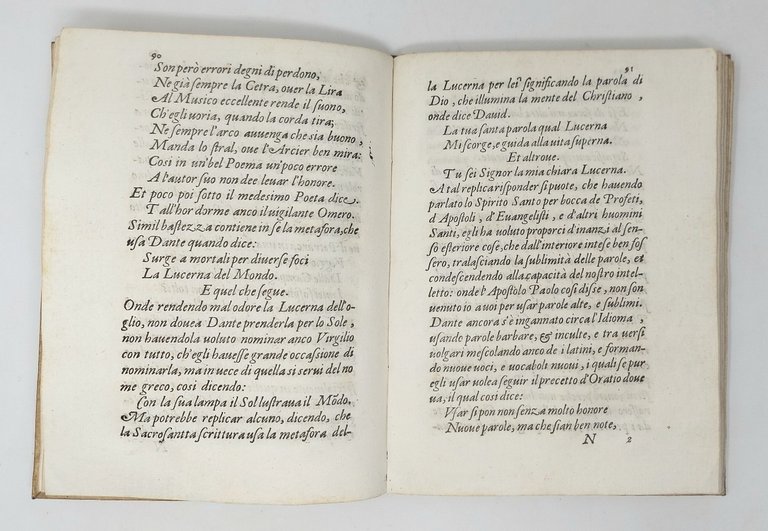 90
Son però errori degni di perdono,
Ne già sempre la Cetra, ouer la Lira
Al Musico eccellente rende il suono,
Ch'egli uoria, quando la corda tira;
Ne sempre l'arco auuenga che sia buono,
Manda lo stral, oue l'Arcier ben mira:
Cosi in un'bel Poema un'poco errore
A l'autor suo non dee leuar l'honore.
Et poco poi sotto il medesimo Poeta dice.
Tall'hor dorme anco il uigilante Omero.
Simil bastezza contiene in se la metafora, che
usa Dante quando dice:
Surge a mortali per diuerse foci
La Lucerna del Mondo.
E quel che segue.
Onde rendendo mal odore la Lucerna dell'o-
glio, non douea Dante prenderla per lo Sole,
non hauendola uoluto nominar anco Virgilio
con tutto, ch'egli hauesse grande occassione di
nominarla, ma in uece di quella si serui del no
me greco, cosi dicendo:
Con la sua lampa il Sol lustraua il Mõdo.
Ma potrebbe replicar alcuno, dicendo, che
la Sacrosantta scrittura usa la metafora del-
91
la Lucerna per lei significando la parola di
Dio, che illumina la mente del Christiano,
onde dice Dauid.
La tua santa parola qual Lucerna
Mi scorge, e guida alla uita superna.
Et altroue.
Tu sei Signor la mia chiara Lucerna.
A tal replica risponder si puote, che hauendo
parlato lo Spirito Santo per bocca de Profeti,
d'Apostoli, d'Euangelisti, e d'altri huomini
Santi, egli ha uoluto proporci d'inanzi al sen-
so esteriore cose, che dall'interiore intese ben fos
sero, tralasciando la sublimità delle parole, et
condescendendo alla capacità del nostro intel-
letto: onde l'Apostolo Paolo cosi disse, non son
uenuto io a uoi per usar parole alte, e sublimi.
Dante ancora s'è ingannato circa l'Idioma,
usando parole barbare, & inculte, e tra uersi
uolgari mescolando anco de i latini, e forman-
do nuoue uoci, e uocaboli nuoui, i quali se pur
egli usar uolea seguir il precetto d'Oratio doue
ua, il qual cosi dice:
Vsar si pon non senza molto honore
Nuoue parole, ma che sian ben note,
N 2